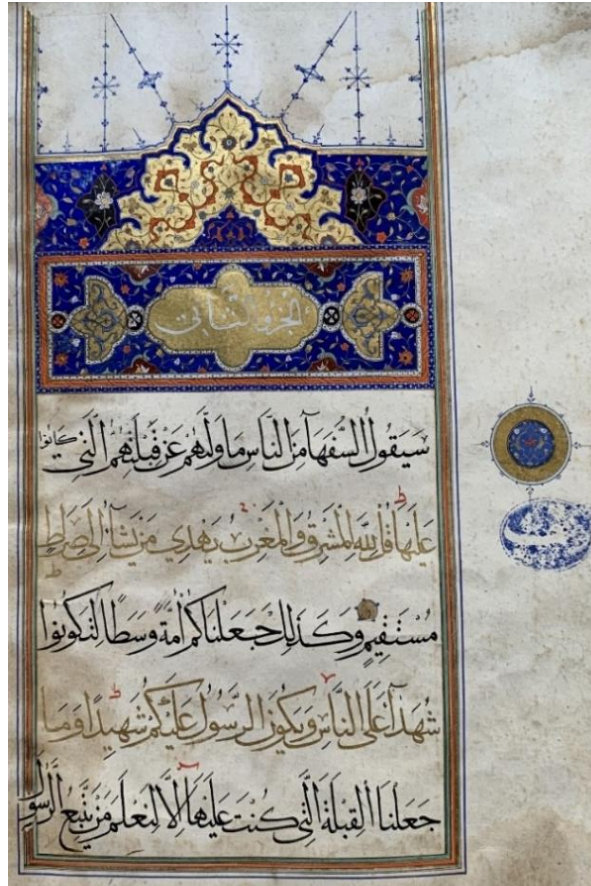 الجزو الثاني
سَيَقُولُ السُّفَهَآءُ مِنَ النَّاسِ مَا وَلَّهُمْ عَنْ قِبْلَتِهِمُ الَّتِي كَانُوا
عَلَيْهَا قُلْ لِلَّهِ الْمَشْرِقُ وَالْمَغْرِبُ يَهْدِي مَنْ يَشَآءُ إِلَى صِرَاطٍ
مُسْتَقِيمٍ وَكَذَلِكَ جَعَلْنَاكُمْ أُمَّةً وَسَطًا لِتَكُونُوا
شُهَدَآءَ عَلَى النَّاسِ وَيَكُونَ الرَّسُولُ عَلَيْكُمْ شَهِيدًا وَمَا
جَعَلْنَا الْقِبْلَةَ الَّتِي كُنْتَ عَلَيْهَا إِلَّا لِنَعْلَمَ مَنْ يَتَّبِعُ الرَّسُولَ